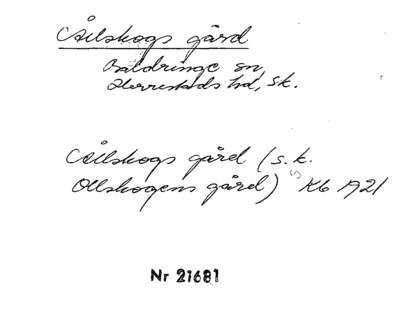 Ålskogs gård
Baldringe sn,
Herrestads hd, Sk.
Ålskogs gård (s.k.
Ollskogens gård) Kb 1921
Nr 21681